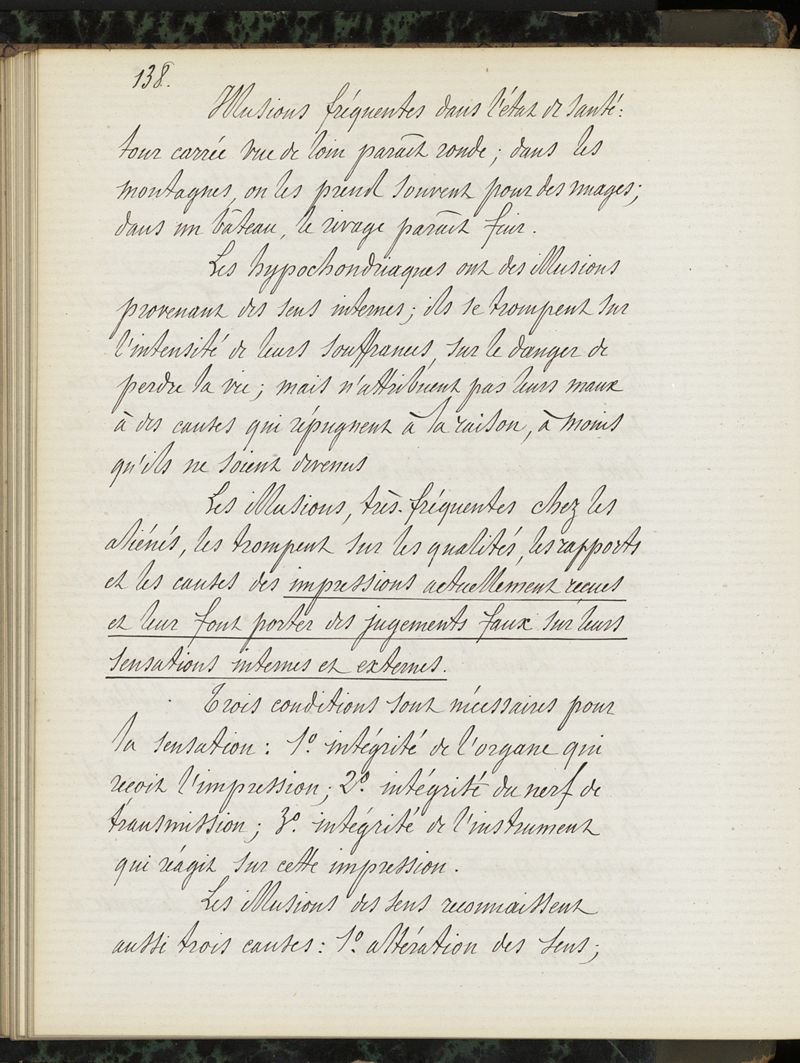 138.
Illusions fréquentes dans l'état de santé :
tour carrée vue de loin paraît ronde ; dans les
montagnes, on les prend souvent pour des nuages ;
dans un bâteau, le rivage paraît fuir.
Les hypochondriaques ont des illusions
provenant des sens internes ; ils se trompent sur
l'intensité de leurs souffrances, sur le danger de
perdre la vie ; mais n'attribuent pas leurs maux
à des causes qui répugnent à la raison, à moins
qu'ils ne soient devenus
Les illusions, très-fréquentes chez les
aliénés, les trompent sur les qualités, les rapports
et les causes des impressions actuellement recues
et leur font porter des jugements faux sur leurs
sensations internes et externes.
Trois conditions sont nécessaires pour
la sensation : 1º. intégrité de l'organe qui
recoit l'impression ; 2º. intégrité du nerf de
transmission ; 3º. intégrité de l'instrument
qui réagit sur cette impression.
Les illusions des sens reconnaissent
aussi trois causes : 1º. altération des sens ;